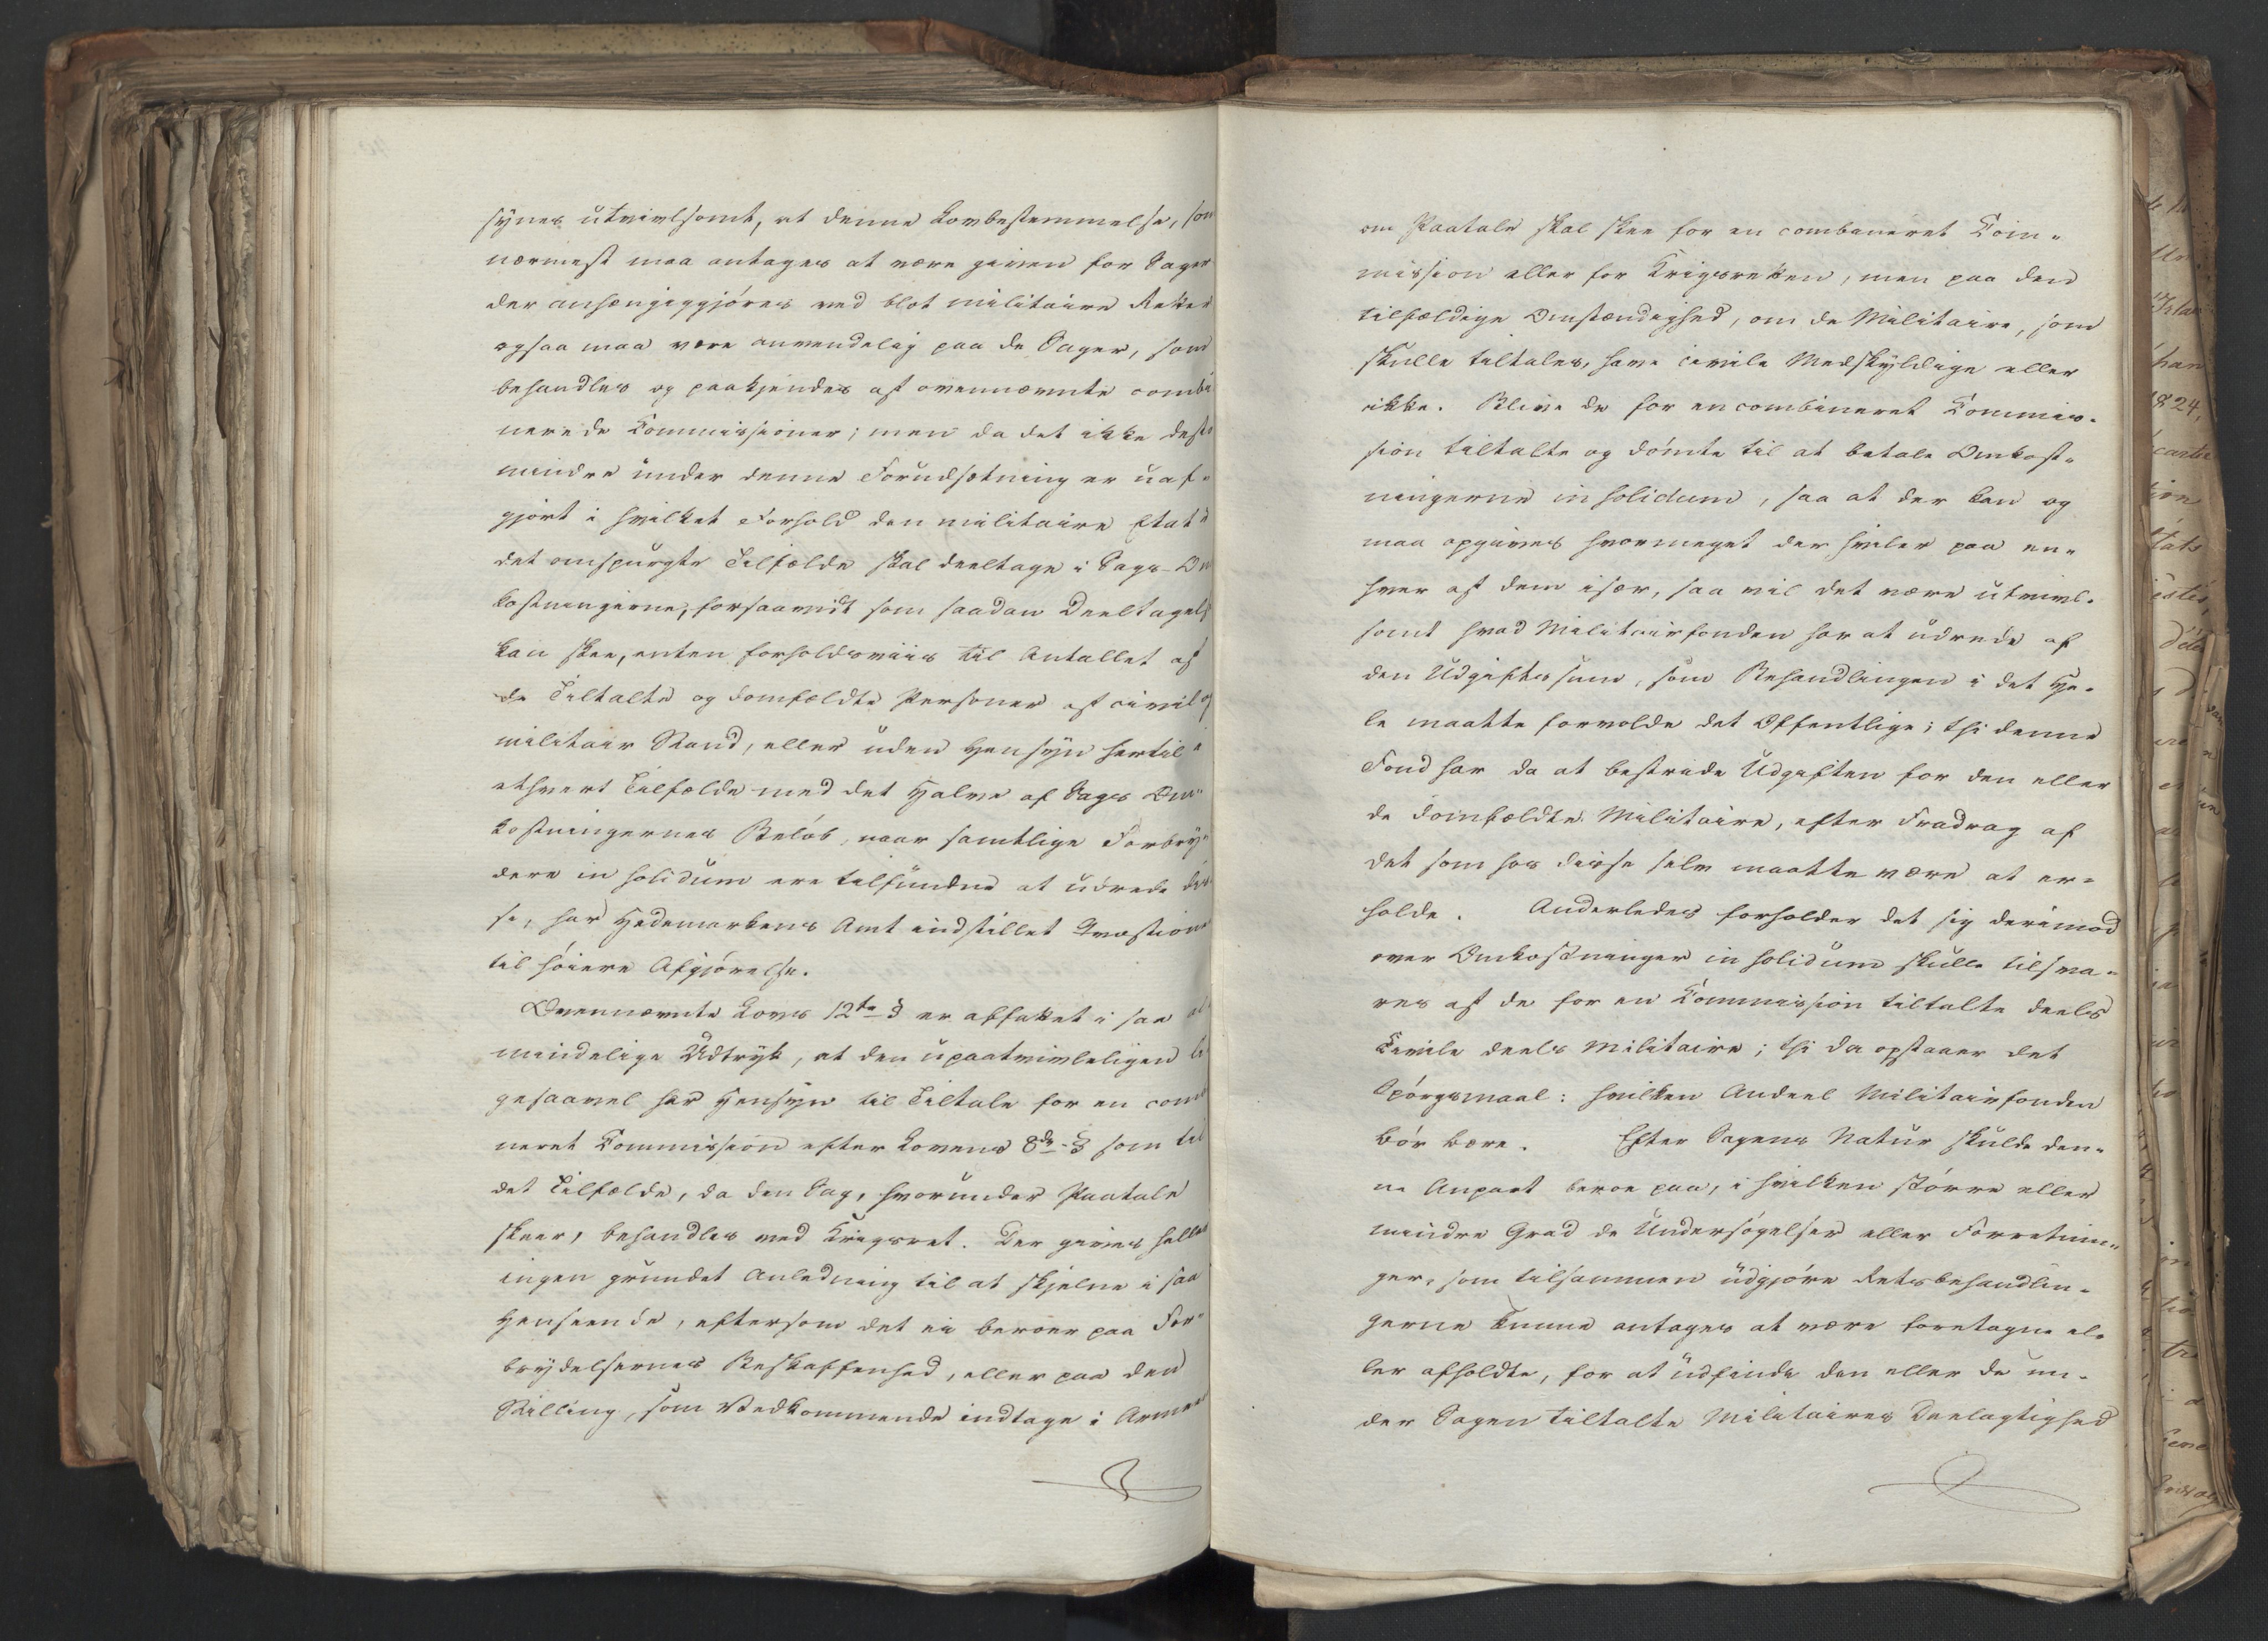 synes utvivlsomt, at denne Lovbestemmelse, som
nærmest maa antages at være given for Sager
der anhængiggjøres ved blot militaire Retter
ogsaa maa være anvendelig paa de Sager, som
behandles og paakjendes af ovennævnte combi
nerede Commissioner; men da det ikke desto
mindre under denne Forudsætning er uaf-
gjort i hvilket Forhold den militaire Etat i
det omspurgte Tilfælde skal deeltage i Sags-Om
kostningerne, forsaavidt som saadan Deeltagelse
kan skee, enten forholdsviis til Antallet af
de Tiltalte og domfældte Personer af civil og
militair Stand, eller uden Hensyn hertil i
ethvert Tilfælde med det Halve af Sags Om-
kostningernes Beløb, naar samtlige Forbry-
dere in solidum ere tilfundne at udrede dis-
se, har Hedemarkens Amt indstillet Qvæstionen
til høiere Afgjørelse.
Ovennævnte Lovs 12te § er affattet i saa al-
mindelige Udtryk, at den upaatvivleligen li-
gesaavel har Hensyn til Tiltale for en combi
neret Commission efter Lovens 8de § som til
det Tilfælde, da den Sag, hvorunder Paatale
skeer, behandles ved Krigsret. Der gives heller
ingen grundet Anledning til at skjelne i saa
Henseende, eftersom det ei beroer paa For-
brydelsernes Beskaffenhed, eller paa den
Stilling, som Vedkommende indtage i Armeen
om Paatale skal skee for en combineret Com-
mission eller for Krigsretten, men paa den
tilfældige Omstændighed, om de Militaire, som
skulle tiltales, have civile Medskyldige eller
ikke. Blive de for en combineret Commis-
sion tiltalte og dømte til at betale Omkost-
ningerne in solidum, saa at der kan og
maa opgives hvormeget der hviler paa en-
hver af dem især, saa vil det være utvivl-
somt hvad Militairfonden har at udrede af
den Udgiftssum, som Behandlingen i det He-
le maatte forvolde det Offentlige; thi denne
Fond har da at bestride Udgiften for den eller
de domfældte Militaire, efter Fradrag af
det som hos disse selv maatte være at er-
holde. Anderledes forholder det sig derimod
over Omkostninger in solidum skulle tilsva-
res af de for en Commission tiltalte deels
Civile deels Militaire; thi da opstaaer det
Spørgsmaal: hvilken Andeel Militairfonden
bør bære. Efter Sagens Natur skulde den-
ne Anpart beroe paa, i hvilken større eller
mindre Grad de Undersøgelser eller Forretnin-
ger, som tilsammen udgjøre Retsbehandlin-
gerne kunne antages at være foretagne el-
ler afholdte, for at udfinde den eller de un-
der Sagen tiltalte Militaires Deelagtighed